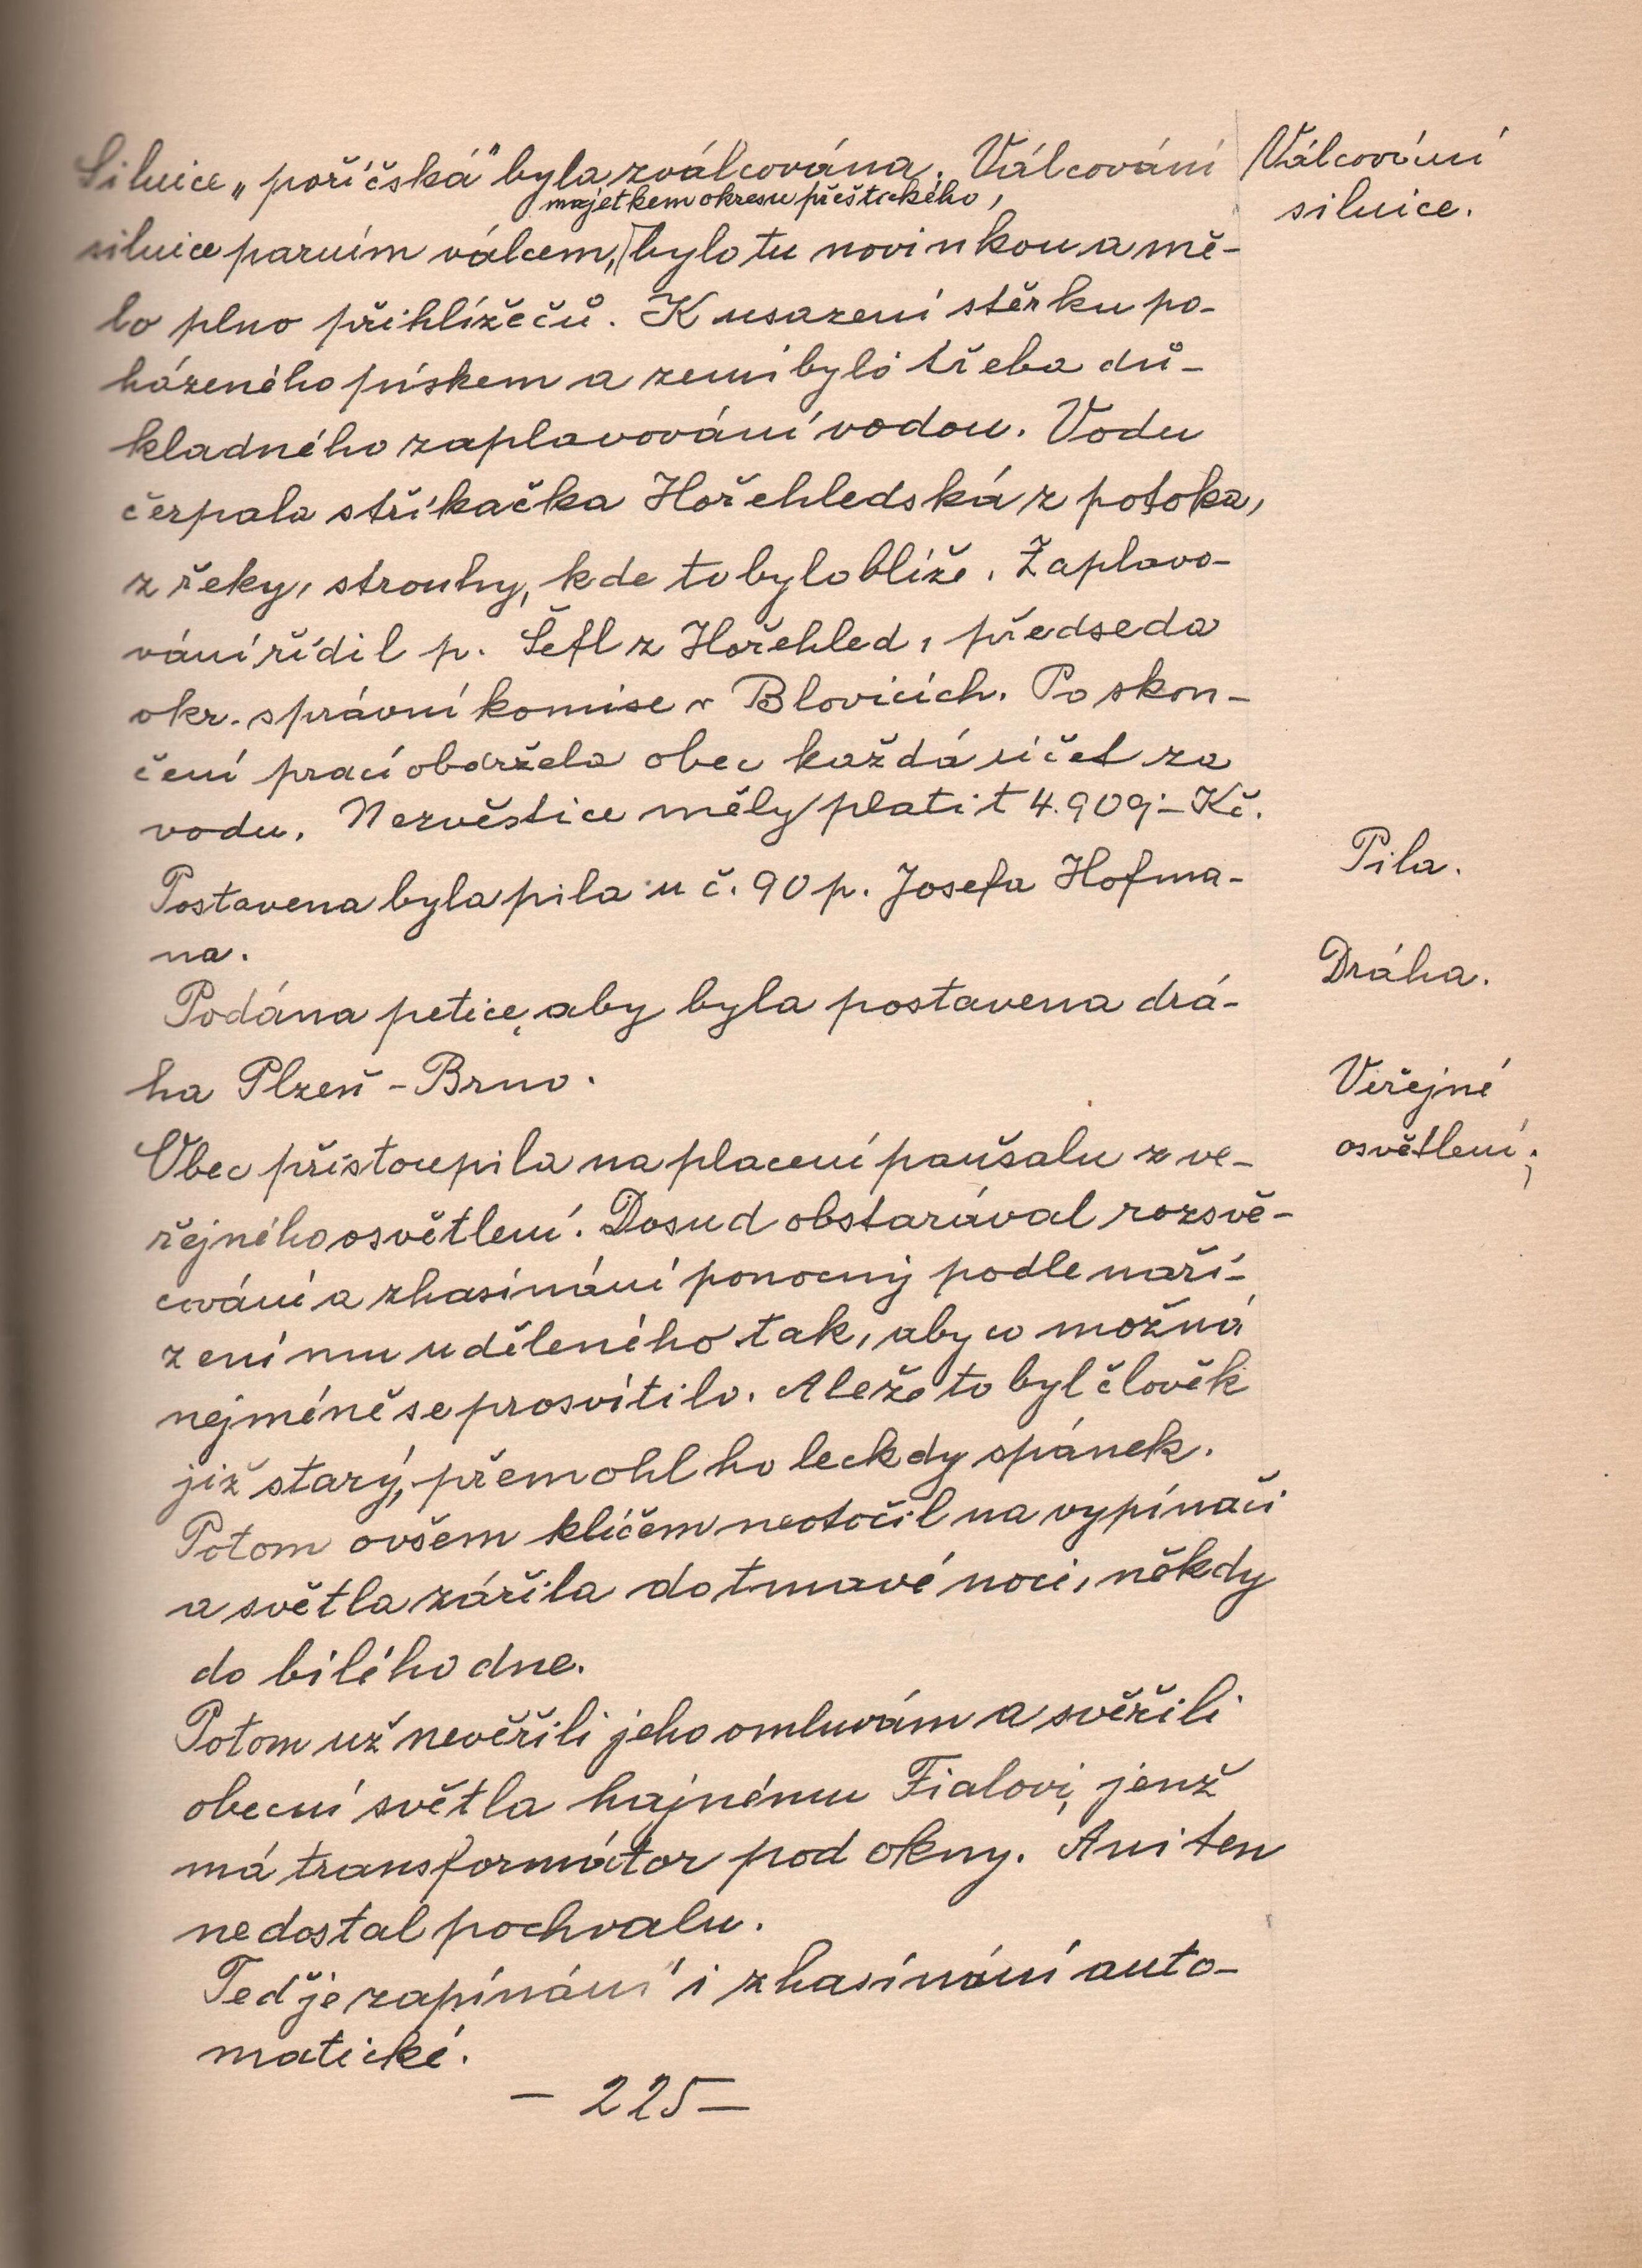 Silnice „poříčská" byla zválcována. Válcování
majetkem okresu přeštického,
silnice parním válcem, bylo tu novinkou a mě-
lo plno přihlížečů. K usazení štěrku po-
házeného pískem a zemí bylo třeba dů-
kladného zaplavování vodou. Vodu
čerpala stříkačka Hořehledská z potoka,
z řeky, strouhy, kde to bylo blíže. Zaplavo-
vání řídil p. Šefl z Hořehled, předseda
okr. správní komise v Blovicích. Po skon-
čení prací obdržela obec každá účet za
vodu. Nezvěstice měly platit 4.909·- Kč.
Postavena byla pila u č. 90 p. Josefa Hofma-
na.
Podána petice, aby byla postavena drá-
ha Plzeň - Brno.
Obec přistoupila na placení paušalu z ve-
řejného osvětlení. Dosud obstarával rozsvě-
cování a zhasínání ponocný podle naří-
zení mu uděleného tak, aby co možná
nejméně se prosvítilo. Ale že to byl člověk
již starý, přemohl ho leckdy spánek.
Potom ovšem klíčem neotočil na vypínači
a světla zářila do tmavé noci, někdy
do bílého dne.
Potom už nevěřili jeho omluvám a svěřili
obecní světla hajnému Fialovi, jenž
má transformátor pod okny. Ani ten
nedostal pochvalu.
Teď je zapínání i zhasínání auto-
matické.
- 225 -
Válcování
silnice.
Pila.
Dráha.
Veřejné
osvětlení.